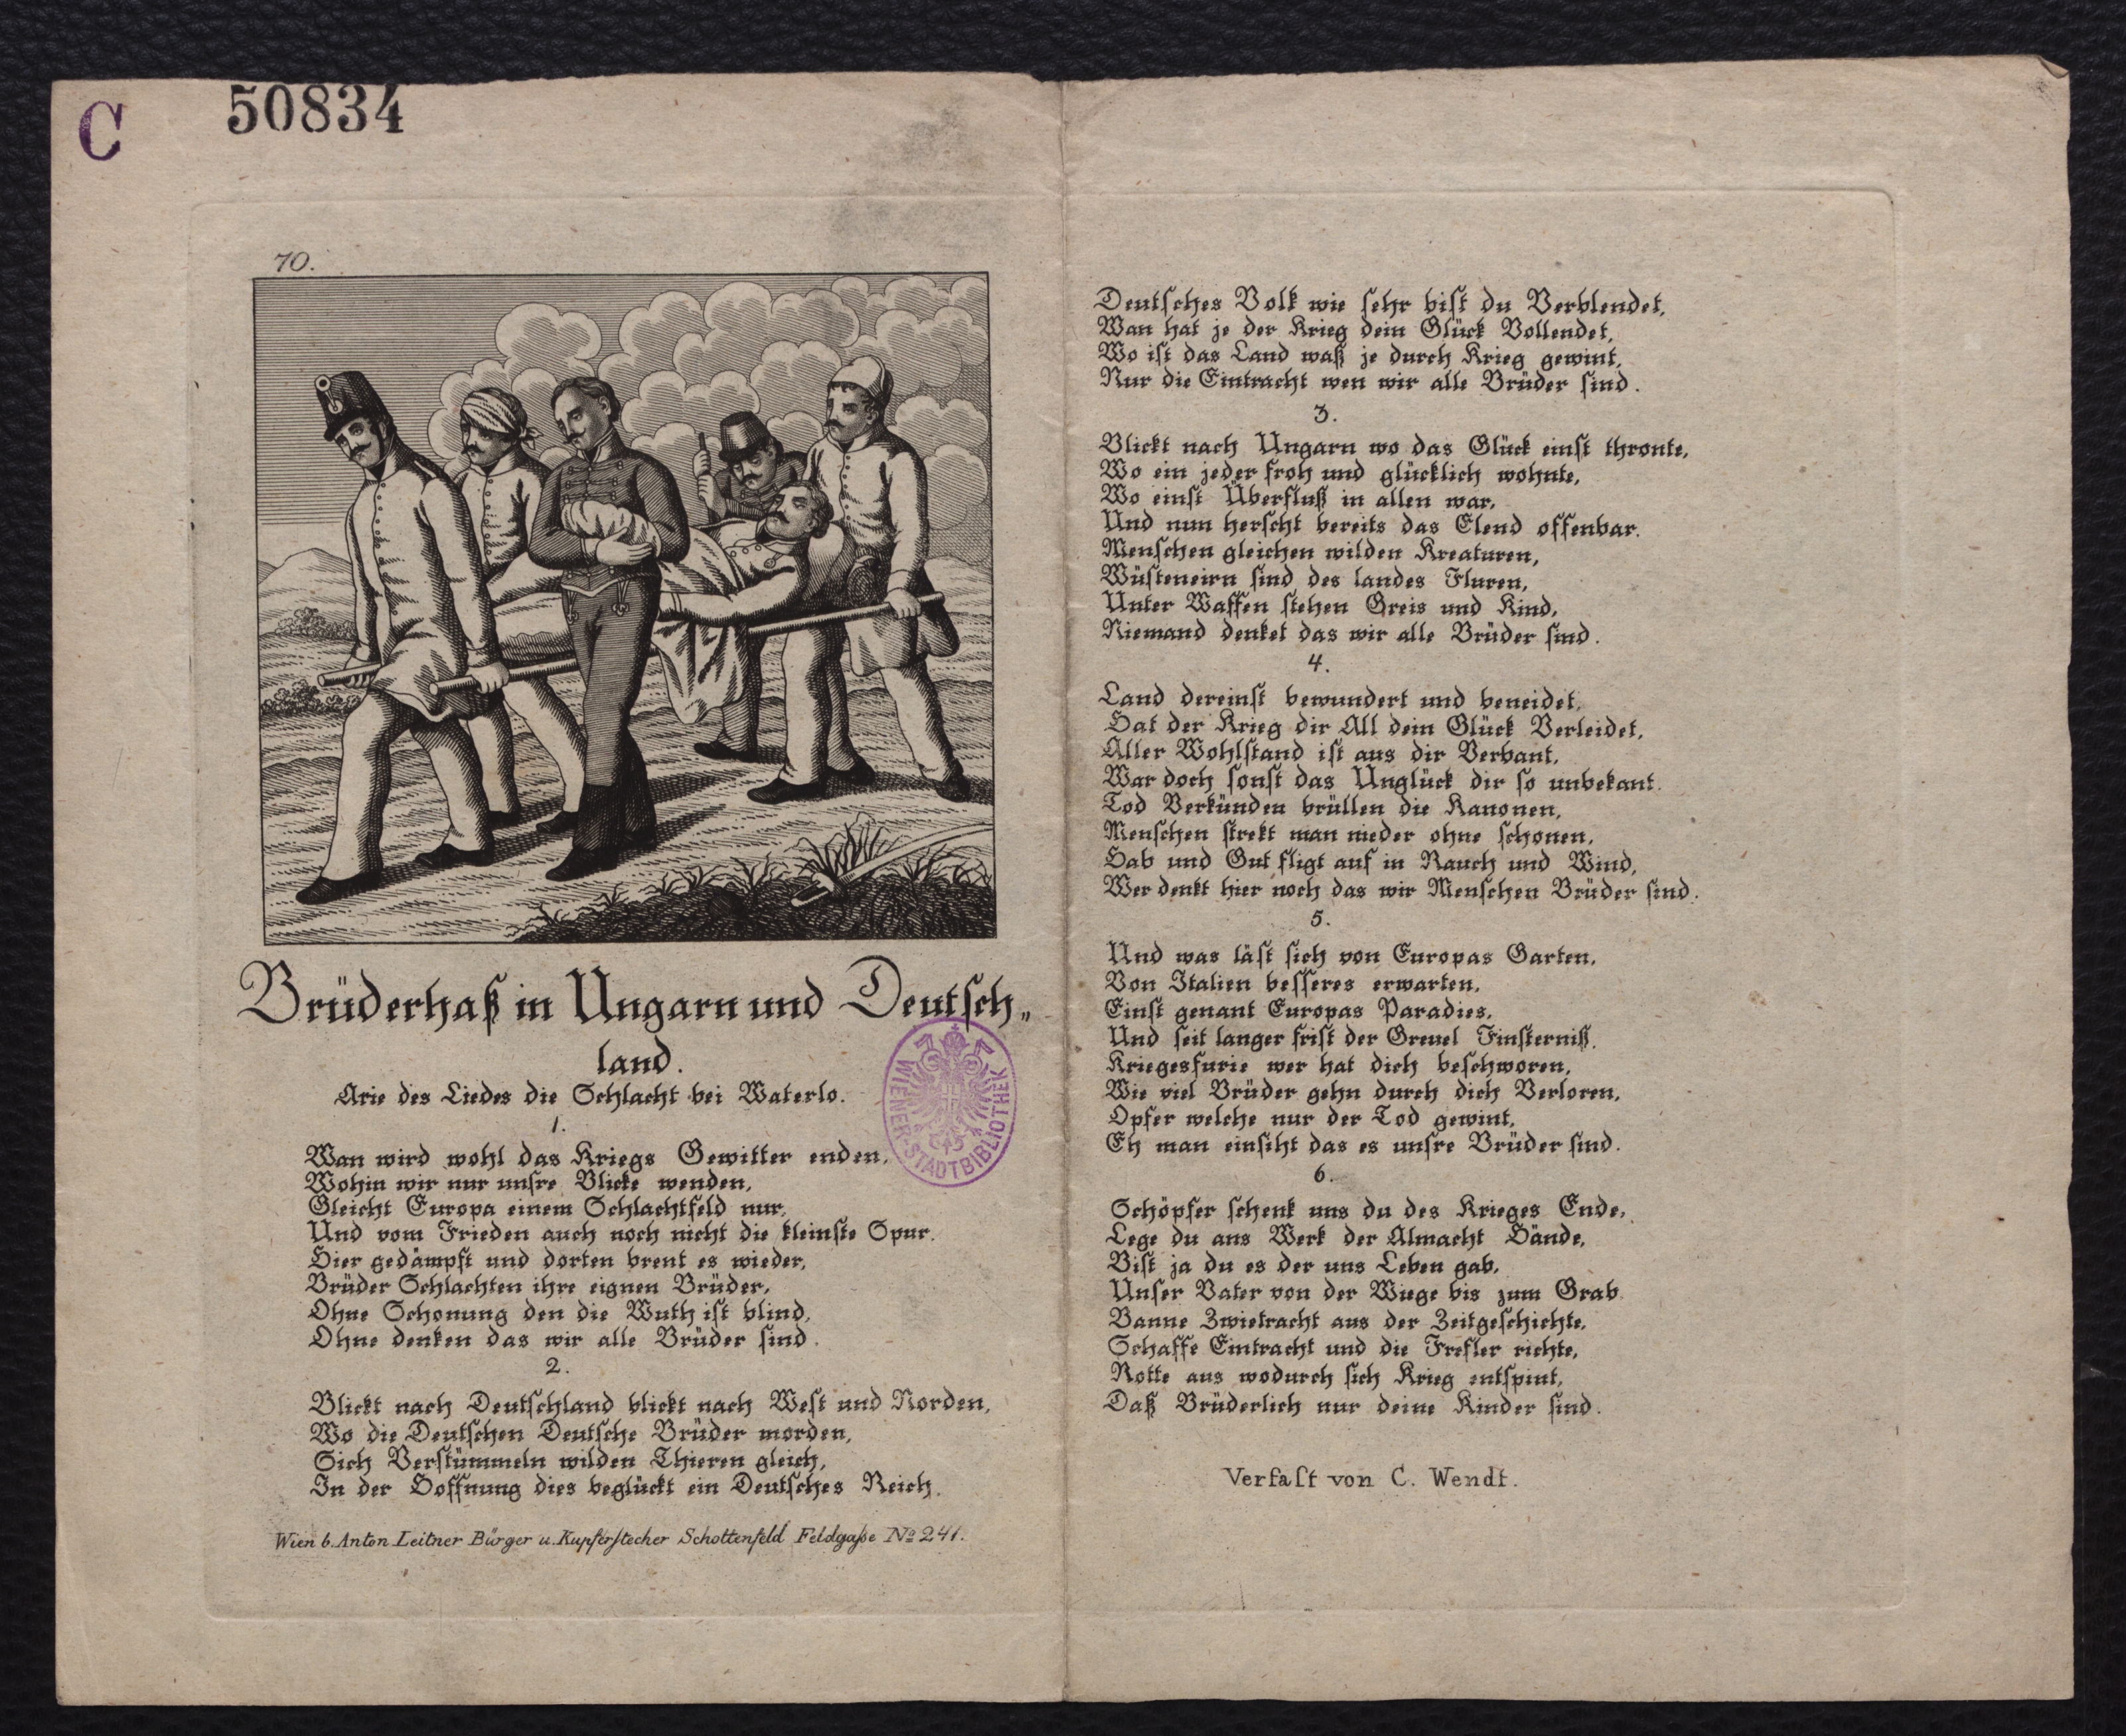 C 50834
70.
Brüderhaß in Ungarn und Deutsch„
land.
Arie des Liedes die Schlacht bei Waterlo.
1.
Wan wird wohl das Kriegs Gewitter enden,
Wohin wir nur unsre Blicke wenden,
Gleicht Europa einem Schlachtfeld nur,
Und vom Frieden auch noch nicht die kleinste Spur.
Hier gedämpft und dorten brent es wieder,
Brüder Schlachten ihre eignen Brüder,
Ohne Schonung den die Wuth ist blind,
Ohne denken das wir alle Brüder sind.
2.
Blickt nach Deutschland blickt nach West und Norden,
Wo die Deutschen Deutsche Brüder morden,
Sich Verstümmeln wilden Thieren gleich,
In der Hoffnung dies beglückt ein Deutsches Reich.
Wien b. Anton Leitner Bürger u. Kupferstecher Schottenfeld Feldgaße No 241.
WIENER STADTBIBLIOTHEK
Deutsches Volk wie sehr bist du Verblendet,
Wan hat je der Krieg dein Glück Vollendet,
Wo ist das Land waß je durch Krieg gewint,
Nur die Eintracht wen wir alle Brüder sind.
3.
Blickt nach Ungarn wo das Glück einst thronte,
Wo ein jeder froh und glücklich wohnte,
Wo einst Überfluß in allen war,
Und nun herscht bereits das Elend offenbar.
Menschen gleichen wilden Kreaturen,
Wüsteneirn sind des landes Fluren,
Unter Waffen stehen Greis und Kind,
Niemand denket das wir alle Brüder sind.
4.
Land dereinst bewundert und beneidet,
Hat der Krieg dir All dein Glück Verleidet,
Aller Wohlstand ist aus dir Verbant,
War doch sonst das Unglück dir so unbekant.
Tod Verkünden brüllen die Kanonen,
Menschen strekt man nieder ohne schonen,
Hab und Gut fligt auf in Rauch und Wind,
Wer denkt hier noch das wir Menschen Brüder sind.
5.
Und was läst sich von Europas Garten,
Von Italien besseres erwarten,
Einst genant Europas Paradies,
Und seit langer frist der Greuel Finsterniß.
Kriegesfurie wer hat dich beschworen,
Wie viel Brüder gehn durch dich Verloren,
Opfer welche nur der Tod gewint,
Eh man einsiht das es unsre Brüder sind.
6.
Schöpfer schenk uns du des Krieges Ende,
Lege du ans Werk der Almacht Hände,
Bist ja du es der uns Leben gab,
Unser Vater von der Wiege bis zum Grab.
Banne Zwietracht aus der Zeitgeschichte,
Schaffe Eintracht und die Frefler richte,
Rotte aus wodurch sich Krieg entspint,
Daß Brüderlich nur deine Kinder sind.
Verfast von C. Wendt.